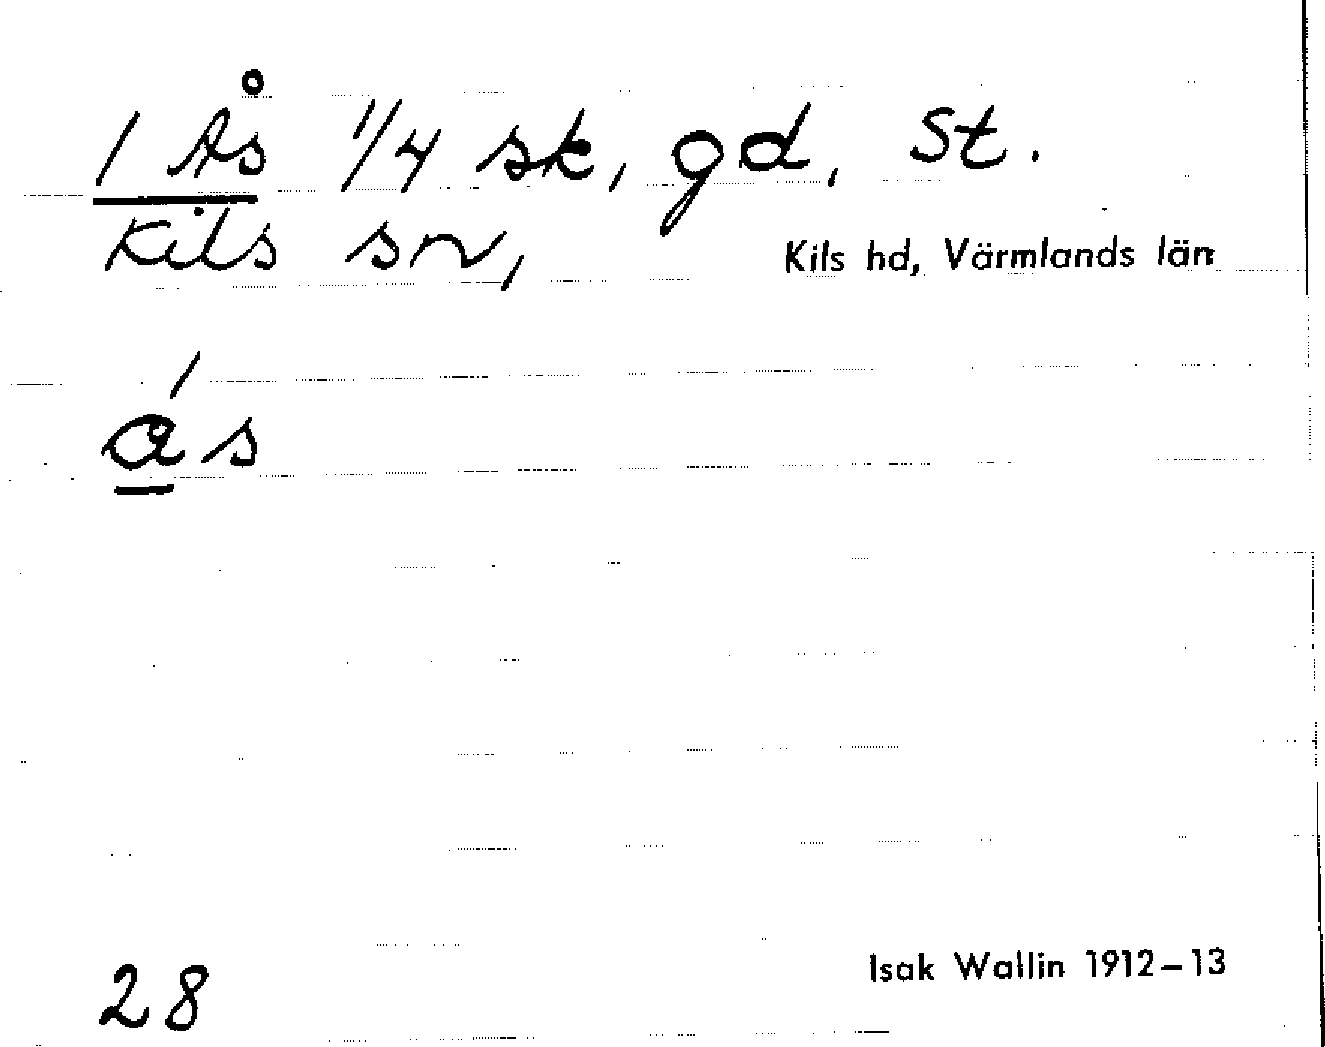 1 Ås 1/4 sk, gd, St.
Kils sn, Kils hd, Värmlands län
ás
28
Isak Wallin 1912–13